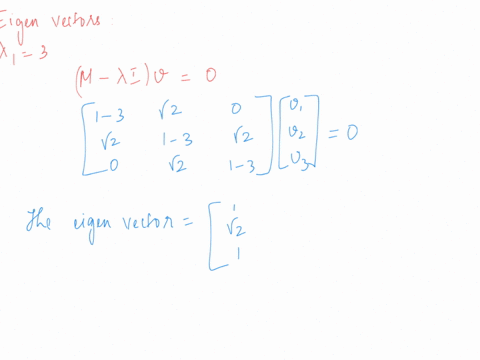 Eigen vectors:
λ₁ = 3
(M - λI)v = 0
[1-3 √2 0
√2 1-3 √2
0 √2 1-3] [v₁
v₂
v₃] = 0
The eigen vector = [1
√2
1